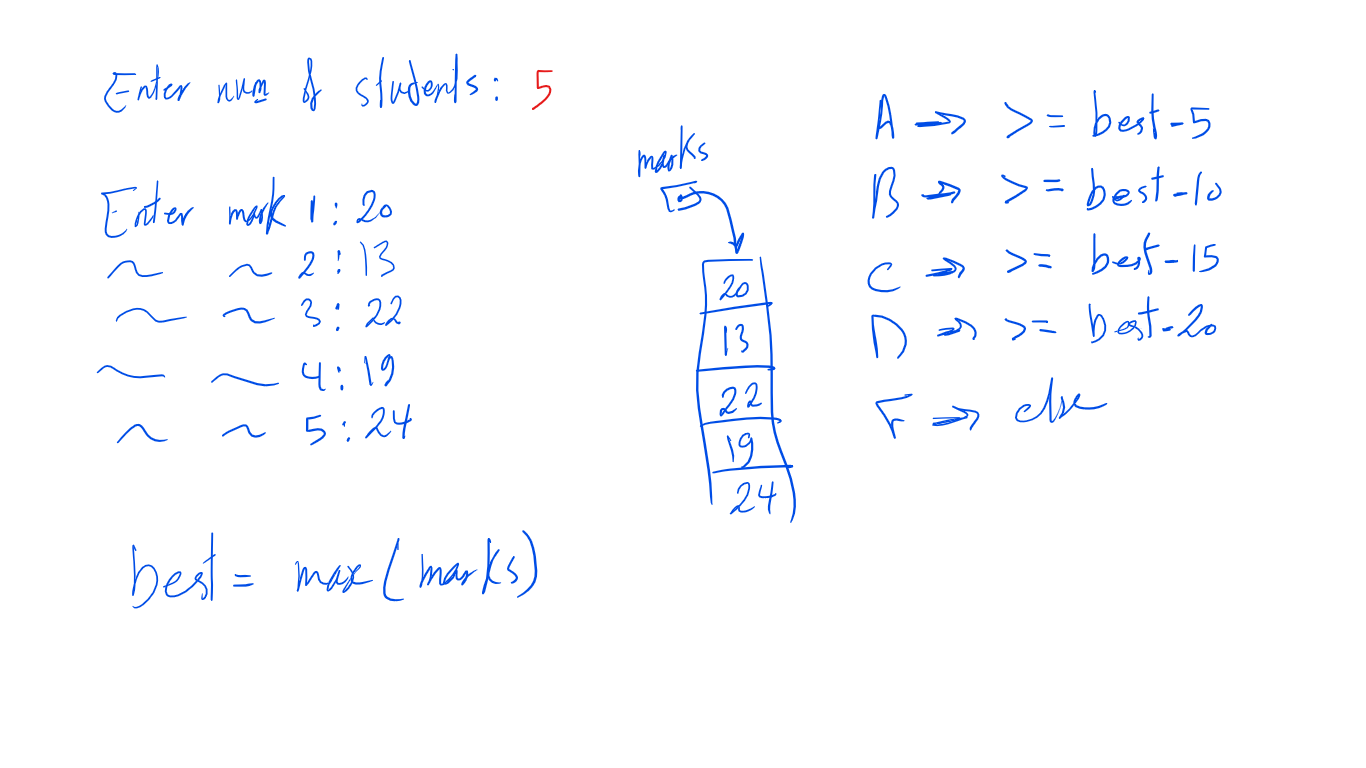 Enter num of students: 5
Enter mark 1: 20
~ ~ 2: 13
~ ~ 3: 22
~ ~ 4: 19
~ ~ 5: 24
best = max(marks)
marks
20
13
22
19
24
A → >= best-5
B → >= best-10
C → >= best-15
D → >= best-20
F → else